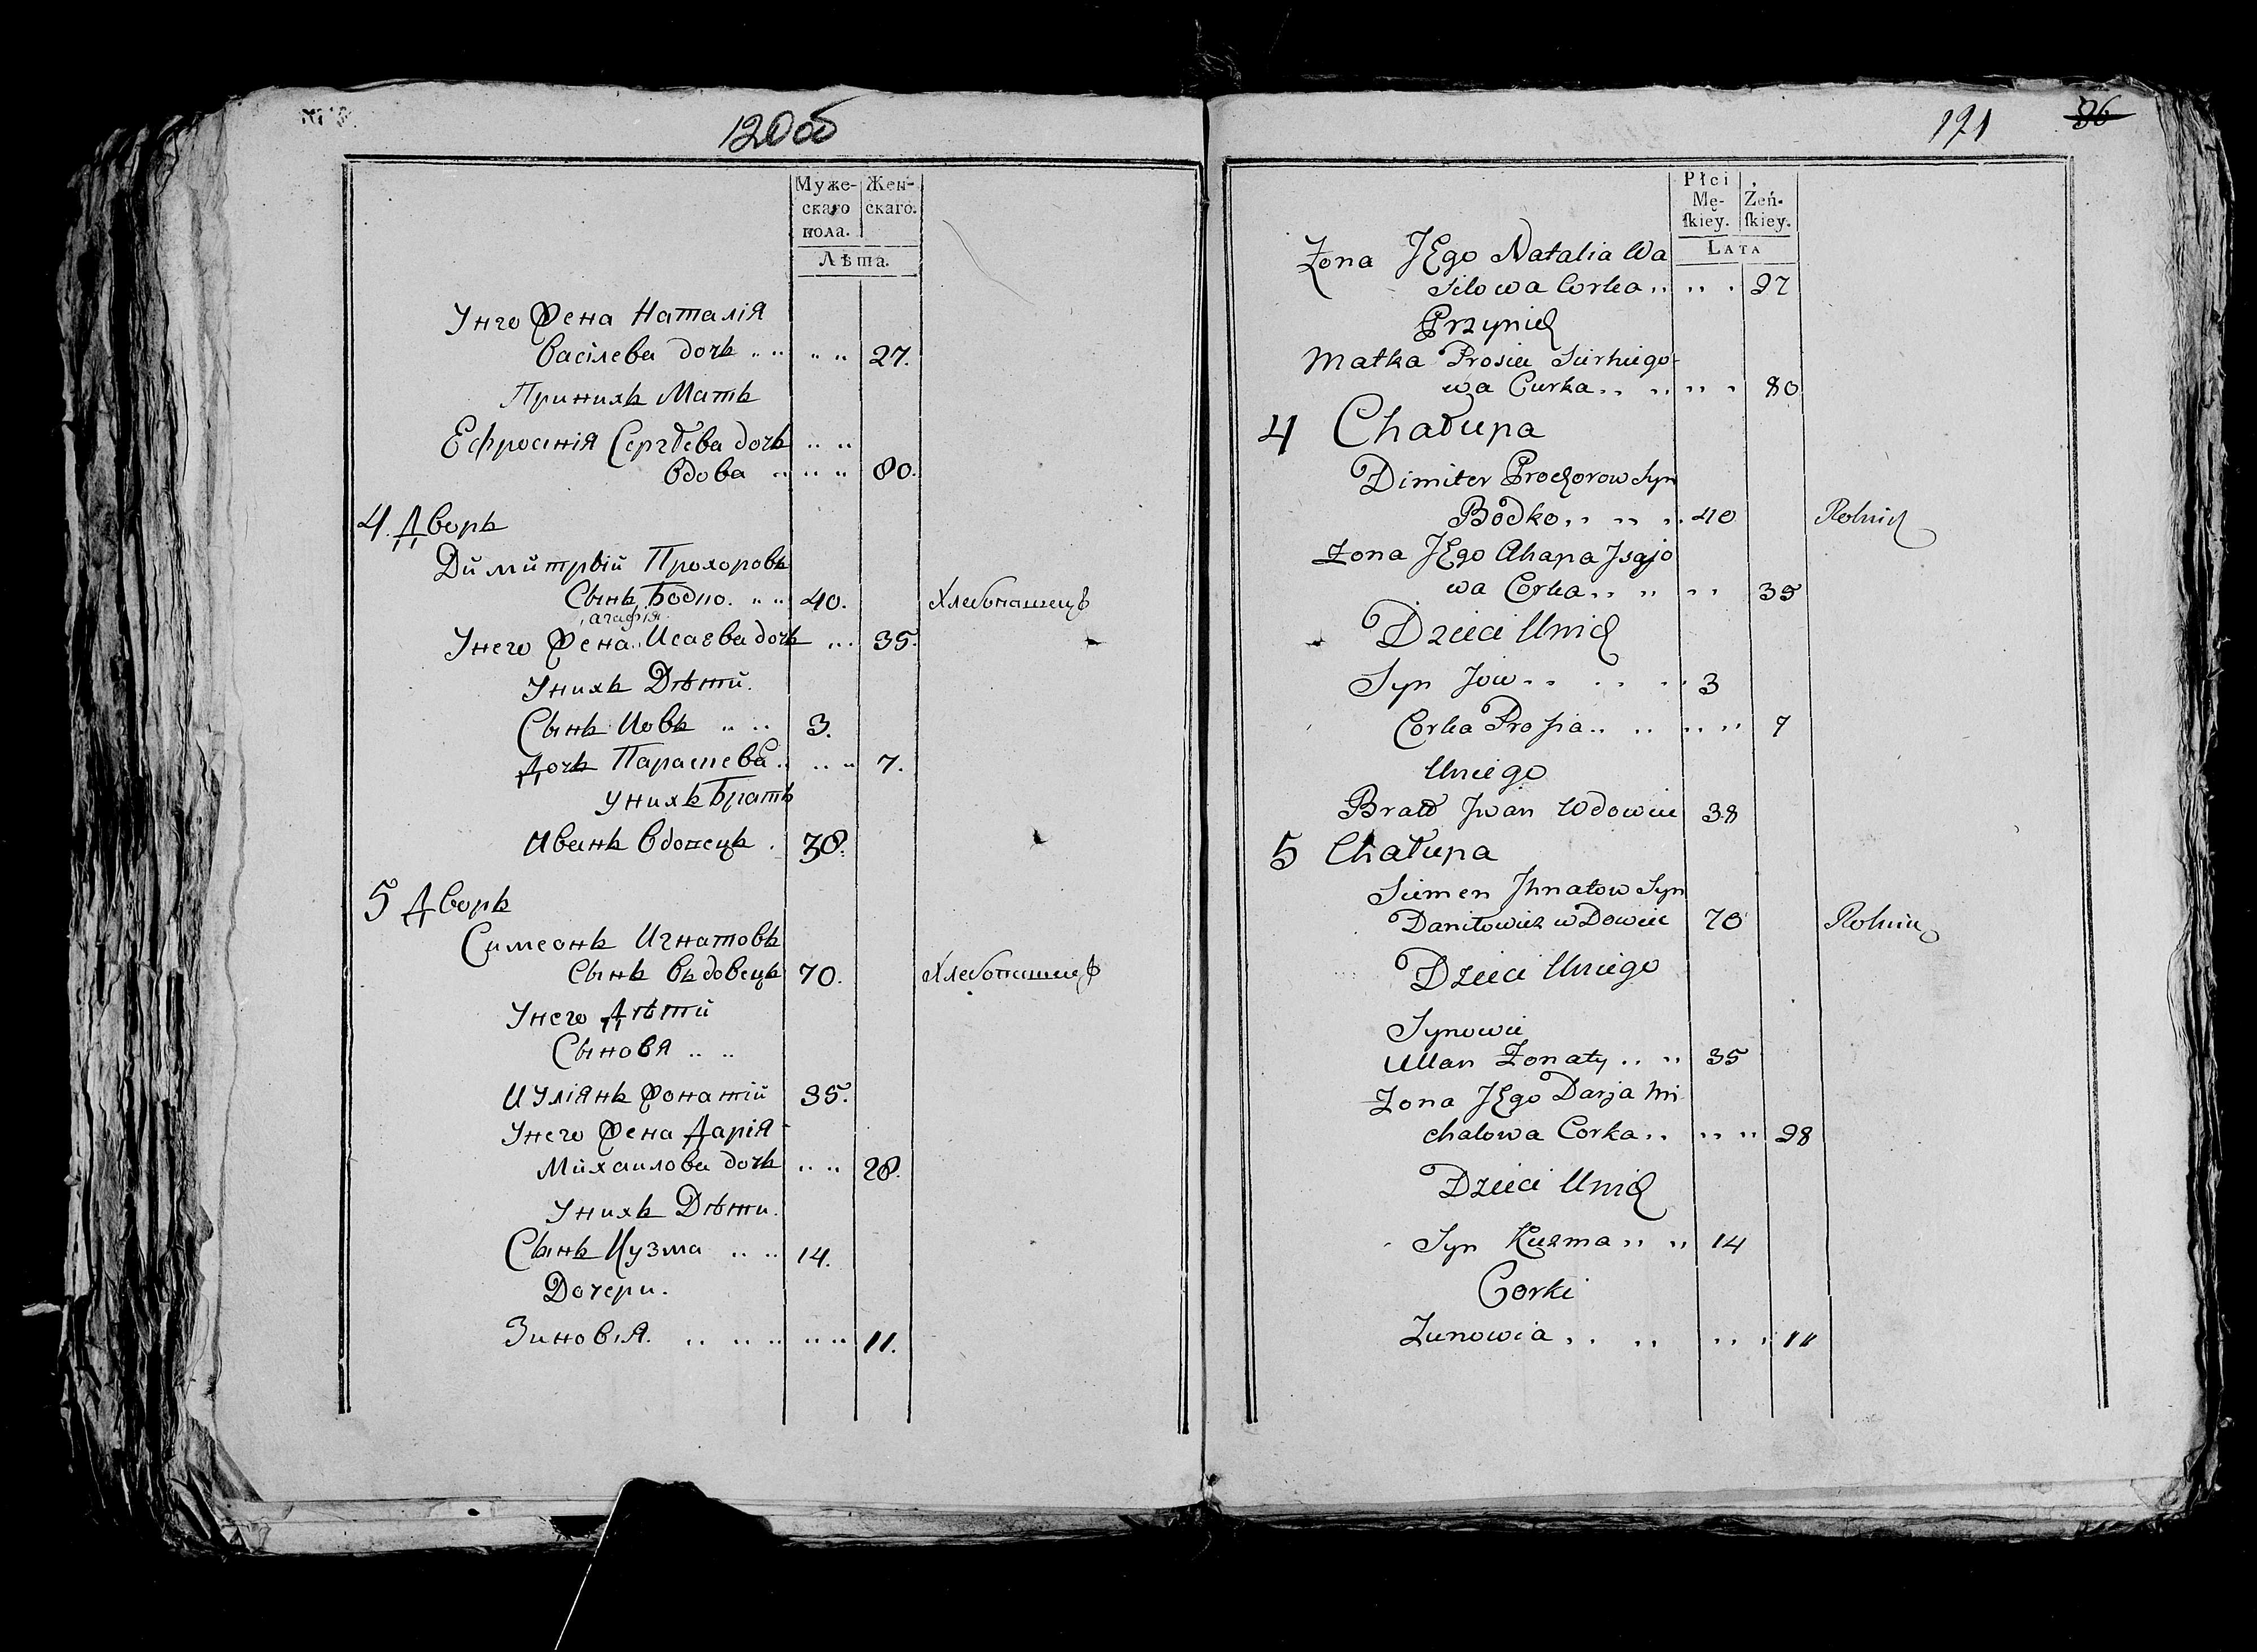 120об
Муже- Жен-
скаго скаго.
пола.
Лѣта.
Унго Жена Наталія
Васілева дочь .. .. .. .. 27.
Принихъ Мать
Ефросинія Сергѣева дочь .. ..
Вдова .. .. .. 80.
4. Дворъ
Димитрвій Прохоровъ
Сынъ Бодко. .. .. 40. Хлебопашецъ
агафія
Унего Жена Исаева дочь .. .. 35.
Унихъ Дѣтй.
Сынъ Иовъ .. .. 3.
Дочь Параскева .. .. .. 7.
Унихъ Братъ
Иванъ вдовецъ . 38.
5 Дворъ
Симеонъ Игнатовъ
Сынъ въдовецъ 70. Хлебопашецъ
Унего Дѣтй
Сыновя .. ..
Иуліянъ Жонатій 35.
Унего Жена Дарія
Михаилова дочь .. .. 28.
Унихъ Дѣти.
Сынъ Кузма .. .. 14.
Дочери.
Зиновія. .. .. .. .. .. 11.
121 86
Płci Żeń-
Mę- ſkiey.
ſkiey.
LATA
Żona JEgo Natalia Wa
silowa Corka .. .. . 27
Przynich
Matka Prosia Sierhiego-
wa Curka .. .. .. . 80
4 Chałupa
Dimiter Prochorow Syn
Bodko .. .. . 40 Rolnich
Żona JEgo Ahapa Jsajo
wa Corka .. .. .. 35
Dzieci Unich
Syn Jow .. .. .. 3
Corka Prosia .. .. .. .. 7
Uniego
Bratt Jwan Wdowiec 38
5 Chałupa
Siemen Jhnatow Syn
Daniłowicz wDowiec 70 Rolnik
Dzieci Uniego
Synowie
Ullan Żonaty .. .. 35
Żona JEgo Darja Mi
chalowa Corka .. .. .. 28
Dzieci Unich
Syn Kuzma .. .. 14
Corki
Zunowia .. .. .. . 11